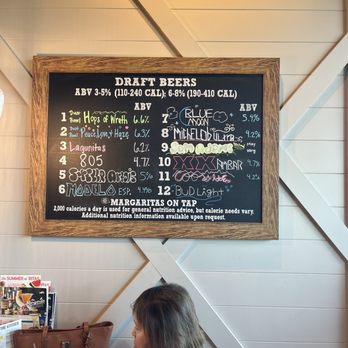 DRAFT BEERS
ABV 3-5% (110-240 CAL); 6-8% (190-410 CAL)
ABV
1 Hops of Wrath 6.6%
2 Peace, Love & Haze 6.3%
3 Lagunitas 6.2%
4 805 4.7%
5
6 MODELO ESP.
ABV
7 BLUE MOON 5.4%
8 MICHELOB Ultra 4.2%
9 SAM ADAMS
10 XX AMBAR 4.7%
11
12 BUD Light
MARGARITAS ON TAP
2,000 calories a day is used for general nutrition advice, but calorie needs vary.
Additional nutrition information available upon request.